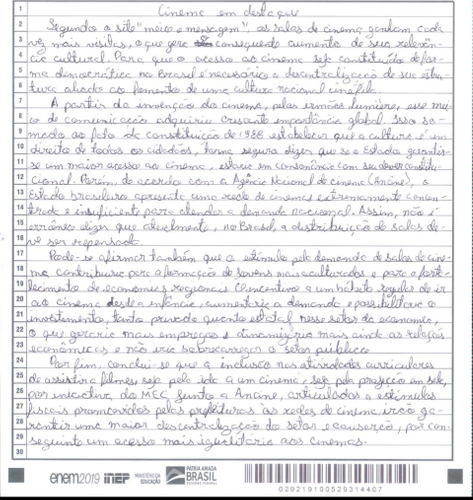 Cinema em destaque
Segundo o site "meio e mensagem", as salas de cinema ganham cada
vez mais visitas, o que gera consequente aumento de sua relevân-
cia cultural. Para que o acesso ao cinema seja constituído de for-
ma democrática no Brasil é necessário a descentralização de sua estru-
tura aliado ao fomento de uma cultura nacional cinéfila.
A partir da invenção do cinema, pelos irmãos Lumière, esse mei-
o de comunicação adquiriu crescente importância global. Isso so-
mado ao fato da constituição de 1988 estabelecer que a cultura é um
direito de todos os cidadãos, torna seguro dizer que se o Estado garantis-
se um maior acesso ao cinema, estaria em consonância com seu dever constitu-
cional. Porém, de acordo com a Agência Nacional de cinema (Ancine), o
Estado brasileiro apresenta uma rede de cinemas extremamente concen-
trada e insuficiente para atender a demanda nacional. Assim, não é
errôneo dizer que atualmente, no Brasil, a distribuição de salas de-
ve ser repensada.
Pode-se afirmar também que o estímulo pela demanda de salas de cine-
ma contribuiria para a formação de jovens mais aculturados e para o forta-
lecimento de economias regionais. O incentivo a um hábito regular de ir
ao cinema desde a infância, aumentaria a demanda e possibilitaria o
investimento, tanto privado quanto estatal nesse setor da economia,
o que geraria mais empregos e dinamizaria mais ainda as relações
econômicas e não iria sobrecarregar o setor público.
Por fim, conclui-se que a inclusão nas atividades curriculares
de assistir a filmes, seja pela ida a um cinema, seja pela projeção em sala,
por iniciativa do MEC junto a Ancine, articulados a estímulos
fiscais promovidos pelas prefeituras às redes de cinema irão ga-
rantir uma maior descentralização do setor e causarão, por con-
seguinte um acesso mais igualitário aos cinemas.
enem2019 inep MINISTÉRIO DA EDUCAÇÃO PÁTRIA AMADA BRASIL GOVERNO FEDERAL
029219100529314407